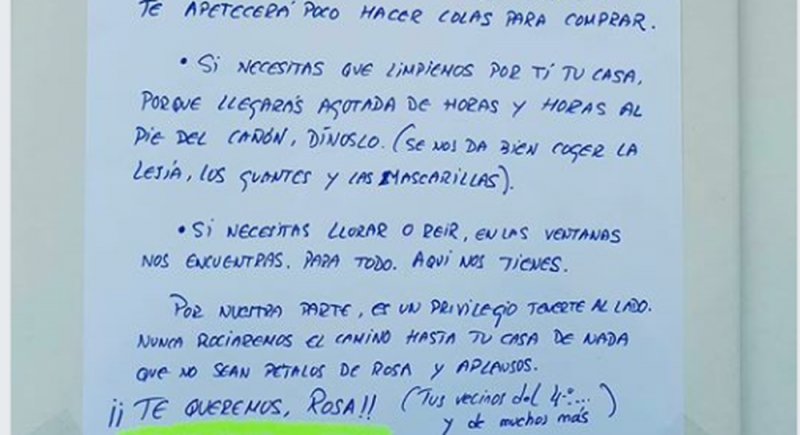 TE APETECERÁ POCO HACER COLAS PARA COMPRAR.
• SI NECESITAS QUE LIMPIEMOS POR TÍ TU CASA,
PORQUE LLEGARÁS AGOTADA DE HORAS Y HORAS AL
PIE DEL CAÑÓN, DÍNOSLO. (SE NOS DA BIEN COGER LA
LEJÍA, LOS GUANTES Y LAS MASCARILLAS).
• SI NECESITAS LLORAR O REIR, EN LAS VENTANAS
NOS ENCUENTRAS. PARA TODO. AQUÍ NOS TIENES.
POR NUESTRA PARTE, ES UN PRIVILEGIO TENERTE AL LADO.
NUNCA ROCIAREMOS EL CAMINO HASTA TU CASA DE NADA
QUE NO SEAN PETALOS DE ROSA Y APLAUSOS.
¡¡ TE QUEREMOS, ROSA!! (Tus vecinos del 4º...
y de muchos más)